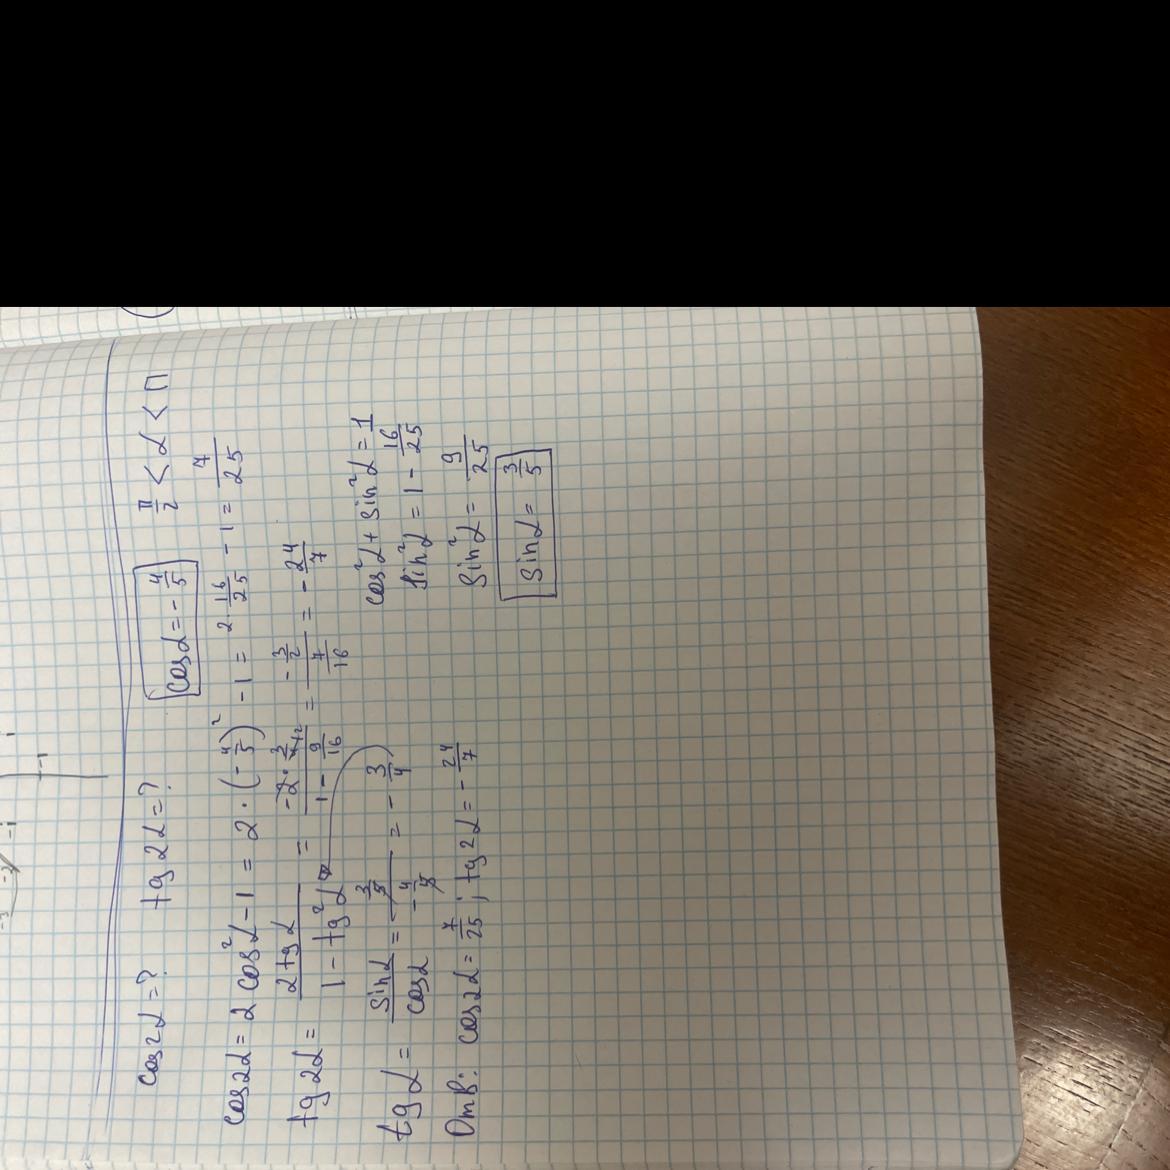 cos2α=? tg2α=? cosα=-4/5 π/2 < α < π
cos2α = 2cos²α-1 = 2·(-4/5)² -1 = 2·16/25 -1 = 7/25
tg2α = 2tgα/(1-tg²α) = (-2·3/4)/(1-9/16) = (-3/2)/(7/16) = -24/7
tgα = sinα/cosα = (3/5)/(-4/5) = -3/4
cos²α+sin²α=1
sin²α=1-16/25
sin²α=9/25
sinα=3/5
Отв: cos2α=7/25; tg2α=-24/7